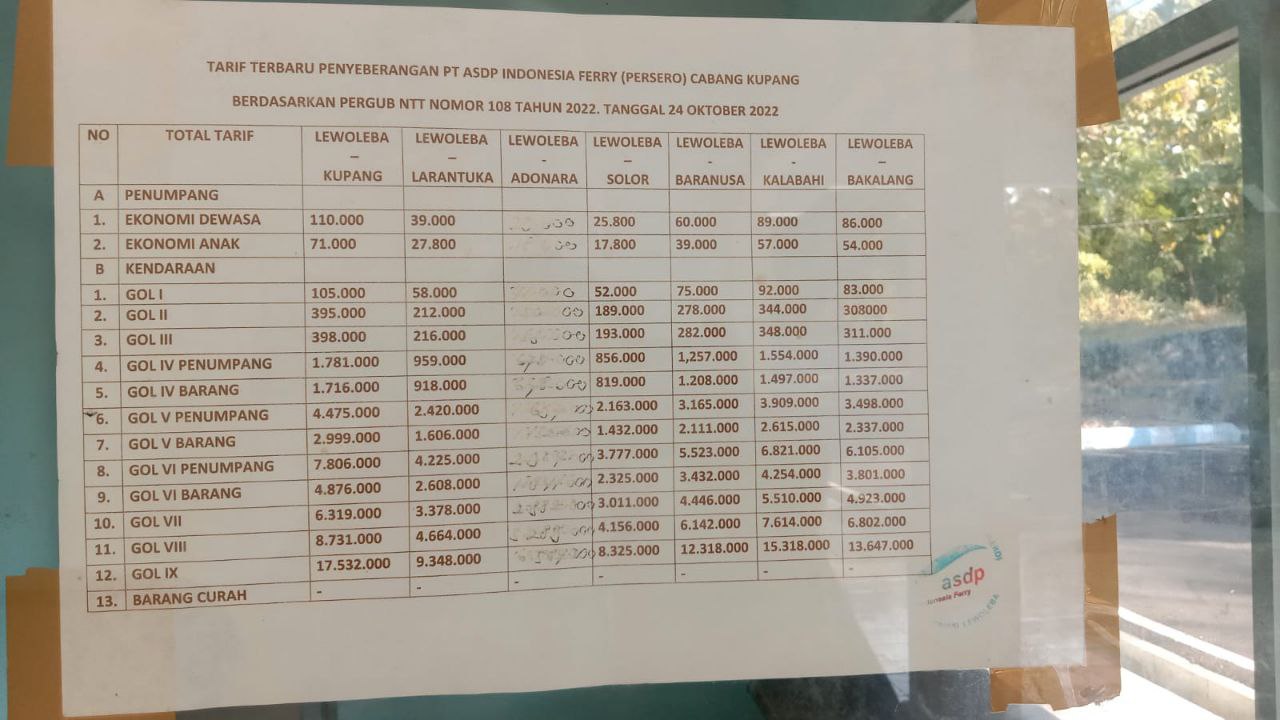 TARIF TERBARU PENYEBERANGAN PT ASDP INDONESIA FERRY (PERSERO) CABANG KUPANG
BERDASARKAN PERGUB NTT NOMOR 108 TAHUN 2022. TANGGAL 24 OKTOBER 2022
NO TOTAL TARIF LEWOLEBA – KUPANG LEWOLEBA – LARANTUKA LEWOLEBA - ADONARA LEWOLEBA – SOLOR LEWOLEBA - BARANUSA LEWOLEBA - KALABAHI LEWOLEBA – BAKALANG
A PENUMPANG
1. EKONOMI DEWASA 110.000 39.000 25.800 60.000 89.000 86.000
2. EKONOMI ANAK 71.000 27.800 17.800 39.000 57.000 54.000
B KENDARAAN
1. GOL I 105.000 58.000 52.000 75.000 92.000 83.000
2. GOL II 395.000 212.000 189.000 278.000 344.000 308000
3. GOL III 398.000 216.000 193.000 282.000 348.000 311.000
4. GOL IV PENUMPANG 1.781.000 959.000 856.000 1,257.000 1.554.000 1.390.000
5. GOL IV BARANG 1.716.000 918.000 819.000 1.208.000 1.497.000 1.337.000
6. GOL V PENUMPANG 4.475.000 2.420.000 2.163.000 3.165.000 3.909.000 3.498.000
7. GOL V BARANG 2.999.000 1.606.000 1.432.000 2.111.000 2.615.000 2.337.000
8. GOL VI PENUMPANG 7.806.000 4.225.000 3.777.000 5.523.000 6.821.000 6.105.000
9. GOL VI BARANG 4.876.000 2.608.000 2.325.000 3.432.000 4.254.000 3.801.000
10. GOL VII 6.319.000 3.378.000 3.011.000 4.446.000 5.510.000 4.923.000
11. GOL VIII 8.731.000 4.664.000 4.156.000 6.142.000 7.614.000 6.802.000
12. GOL IX 17.532.000 9.348.000 8.325.000 12.318.000 15.318.000 13.647.000
13. BARANG CURAH - - - - - - -
asdp
Ferry
LEWOLEBA